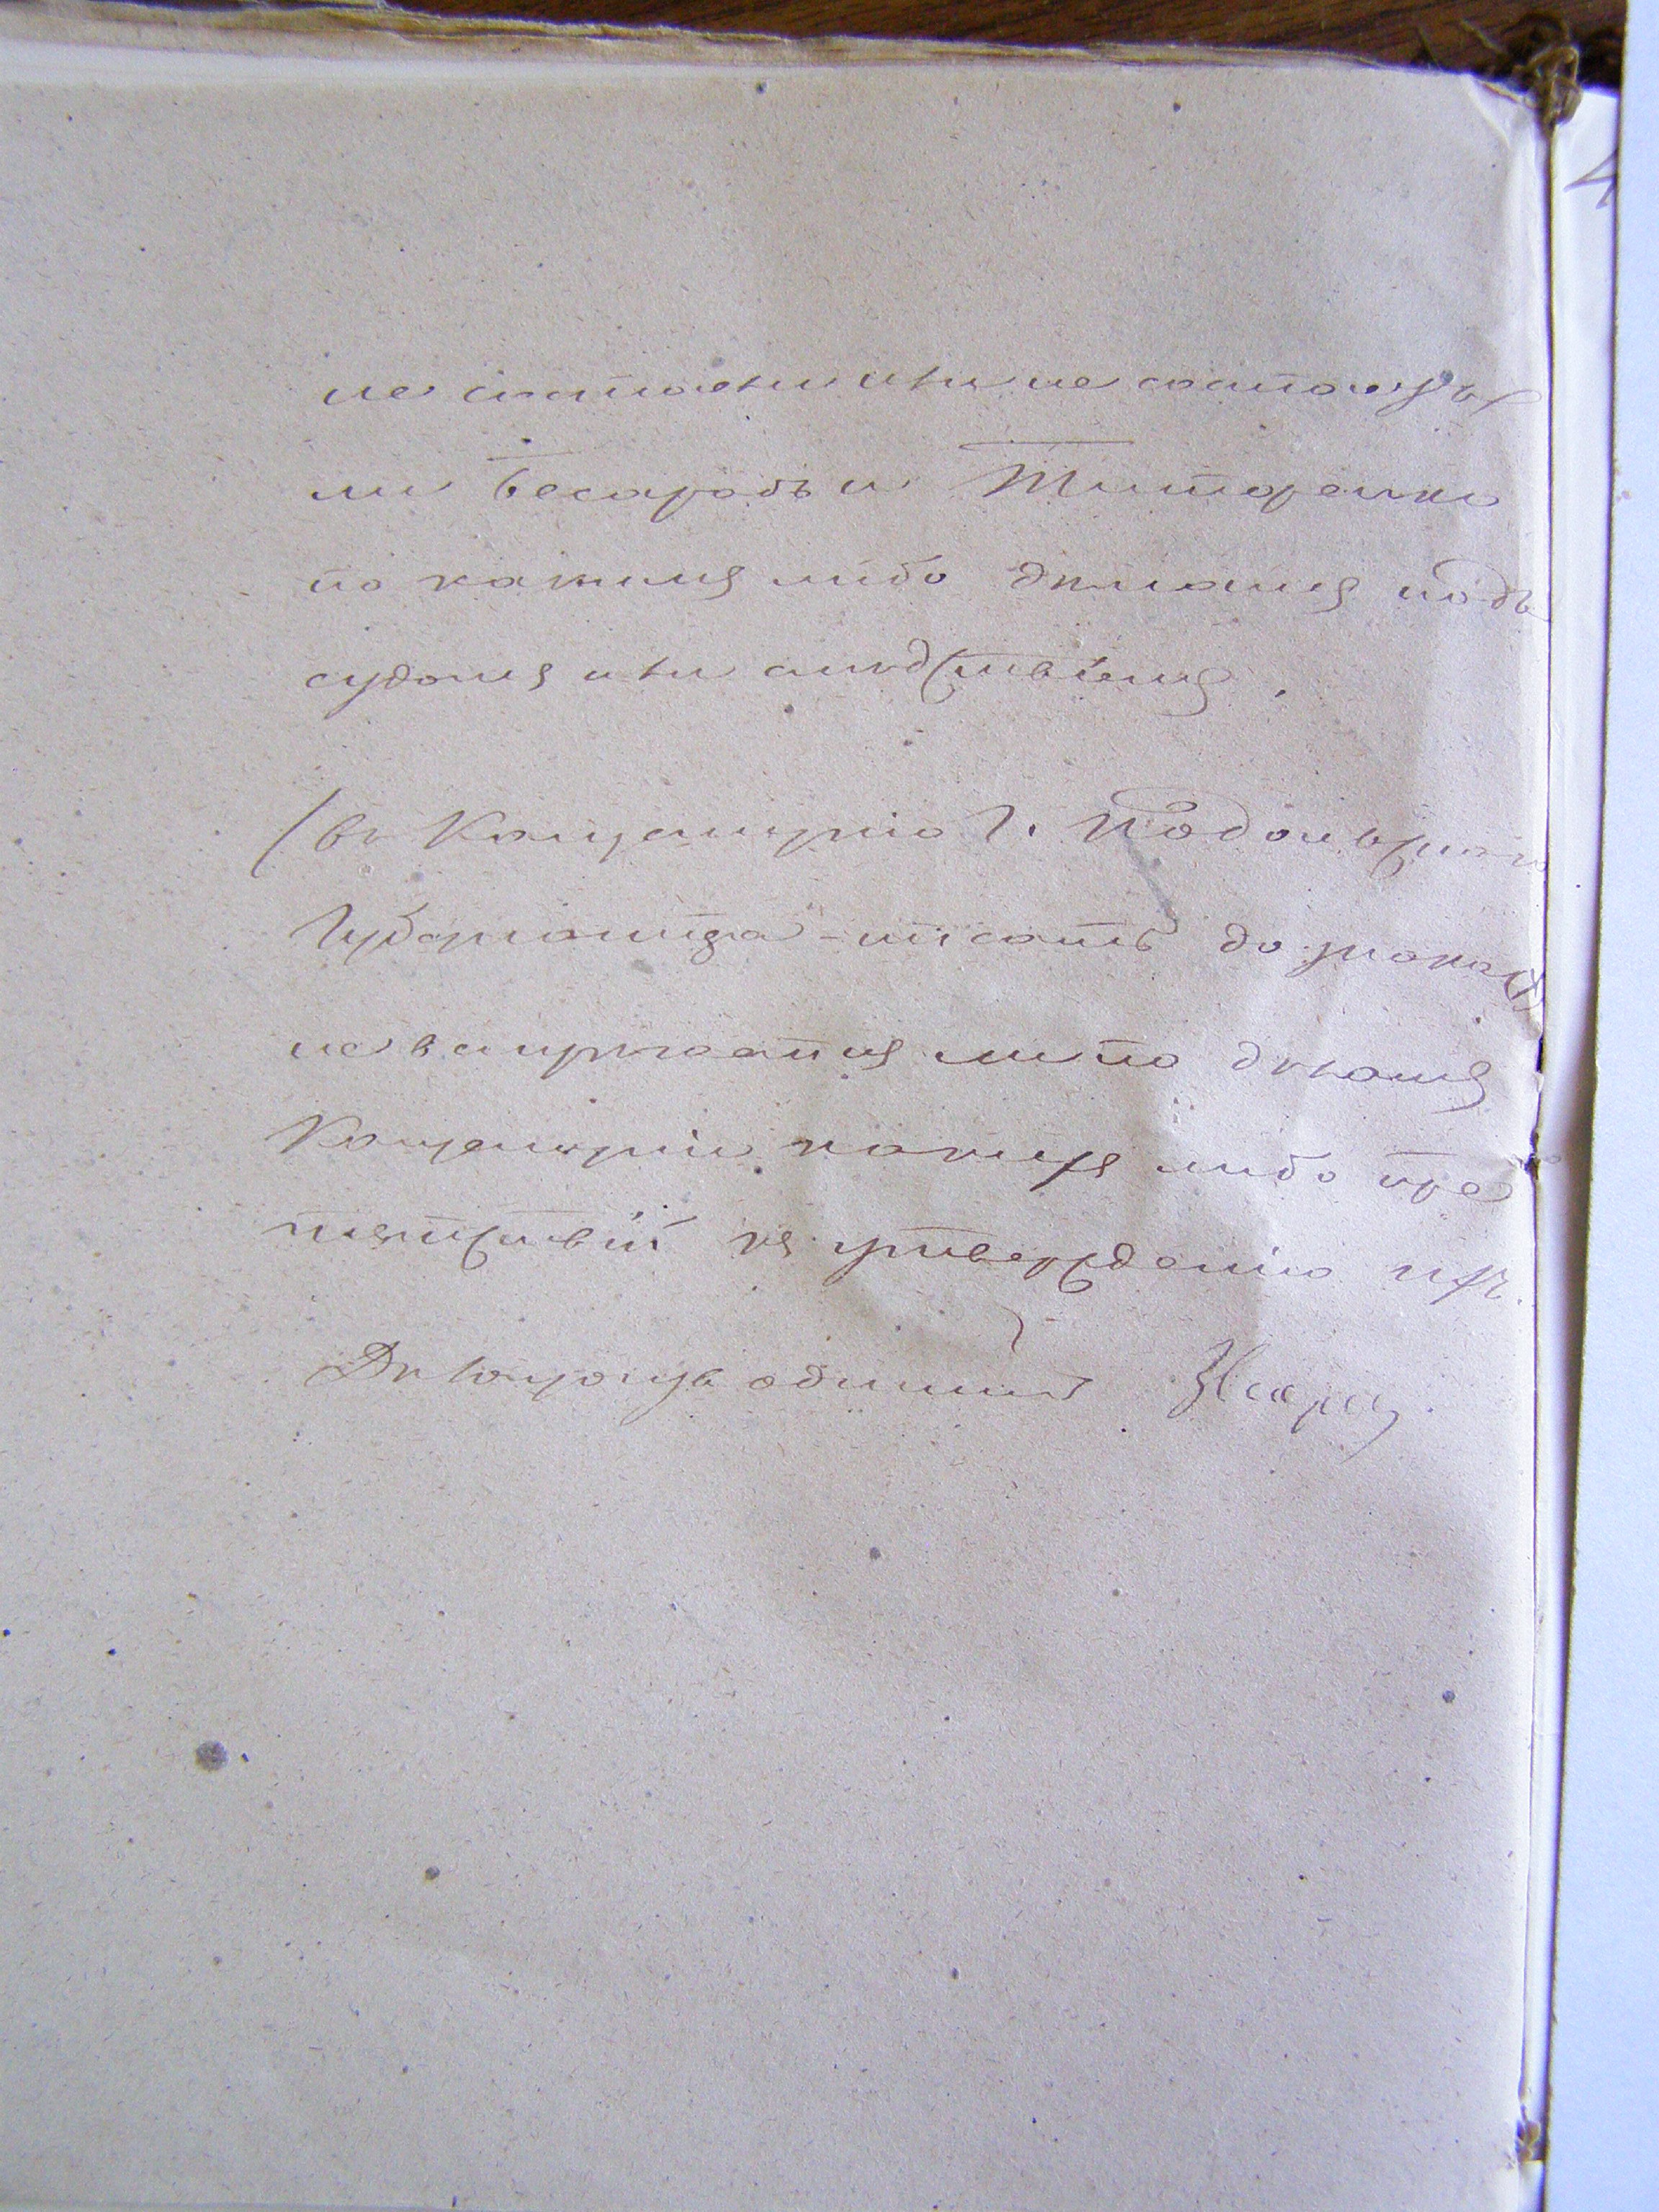 не состояли или не состоятъ
ли Бесарабъ и Титаренко
по какимъ либо дѣламъ подъ
судомъ или слѣдствіемъ.
(въ Канцелярію Г. Подольскаго
Губернатора - писать до знака (+)
не встрѣчается ли по дѣламъ
Канцеляріи какихъ либо пре
пятствій къ утвержденію ихъ.
Дѣлопроизводитель